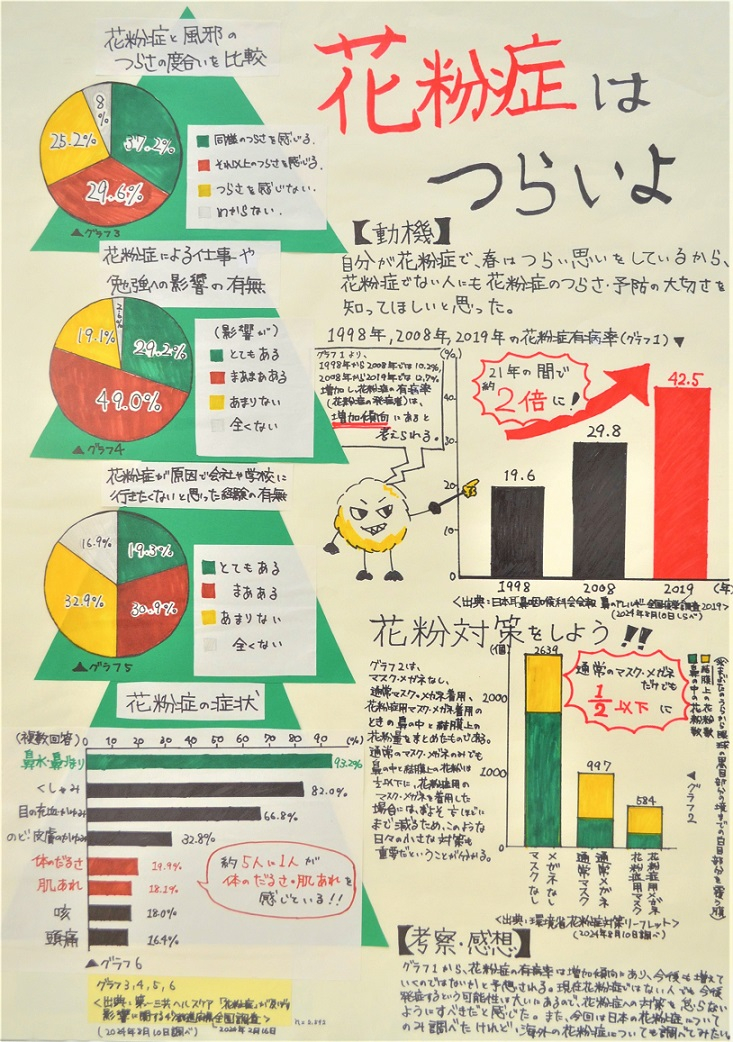 花粉症は
つらいよ
【動機】
自分が花粉症で、春はつらい思いをしているから、
花粉症でない人にも花粉症のつらさ・予防の大切さを
知ってほしいと思った。
1998年,2008年,2019年の花粉症有病率(グラフ1)▼
グラフ1より、
1998年から2008年では10.2%、
2008年から2019年では12.7%
増加し、花粉症の有病率
(花粉症の発症者)は、
増加傾向にあると
考えられる。
(%)
40
30
20
10
0
21年の間で
約2倍に!
19.6
29.8
42.5
1998
2008
2019
(年)
<出典:日本耳鼻咽喉科会会報 鼻のアレルギー全国疫学調査2019>
(2024年8月10日しらべ)
花粉対策をしよう!!
グラフ2は、
マスク・メガネなし、
通常マスク・メガネ着用、
花粉症用マスク・メガネ着用の
ときの鼻の中と結膜上の
花粉量をまとめたものである。
通常のマスク・メガネのみでも
鼻の中と結膜上の花粉は
½以下に、花粉症用の
マスク・メガネを着用した
場合には、およそ
まで減るため、このような
日々の小さな対策も
重要だということが分かる。
(個)
2000
1000
0
2639
997
584
通常のマスク・メガネ
だけでも
1/2以下に
結膜上の花粉数
鼻の中の花粉数
▲グラフ2
メガネなし
マスクなし
通常メガネ
通常マスク
花粉症用メガネ
花粉症用マスク
<出典:環境省花粉症対策リーフレット>
(2024年8月10日調べ)
【考察・感想】
グラフ1から、花粉症の有病率は増加傾向にあり、今後も増えて
いくのではないかと予想される。現在花粉症ではない人でも今後
発症するという可能性は大いにあるので、花粉症への対策も怠らない
ようにすべきだと感じた。また、今回は日本の花粉症について
のみ調べたけれど、海外の花粉症についても調べてみたい。
花粉症と風邪の
つらさの度合いを比較
8%
37.2%
25.2%
29.6%
同様のつらさを感じる.
それ以上のつらさを感じる.
つらさを感じない.
わからない.
▲グラフ3
花粉症による仕事や
勉強への影響の有無
2.6%
19.1%
29.2%
49.0%
(影響が)
とてもある
まあまあある
あまりない
全くない
▲グラフ4
花粉症が原因で会社や学校に
行きたくないと思った経験の有無
16.9%
19.3%
32.9%
30.9%
とてもある
まあある
あまりない
全くない
▲グラフ5
花粉症の症状
(複数回答)
0 10 20 30 40 50 60 70 80 90 (%)
鼻水・鼻づまり 93.2%
くしゃみ 82.0%
目の充血・かゆみ 66.8%
のど・皮膚のかゆみ 32.8%
体のだるさ 19.9%
肌あれ 18.1%
咳 18.0%
頭痛 16.4%
約5人に1人が
体のだるさ・肌あれを
感じている!!
▲グラフ6
グラフ3,4,5,6
<出典:第一三共ヘルスケア「花粉症」が及ぼす
影響に関する 全国調査>
(2024年8月10日調べ)